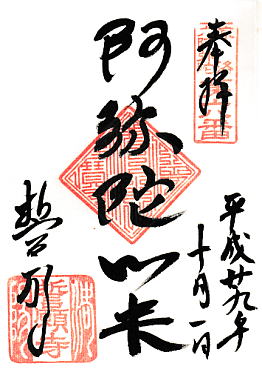 奉拝
平成廿九年
十月一日
阿弥陀如来
誓願寺
誓願寺